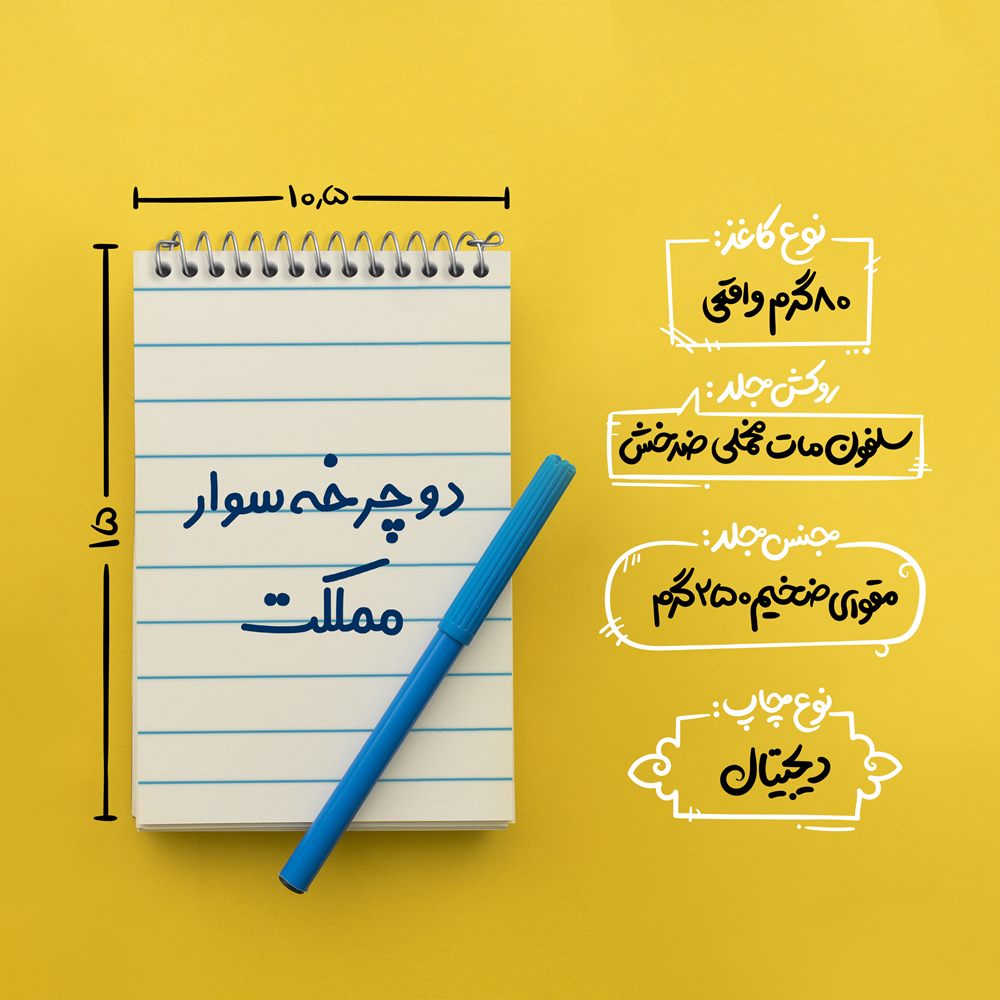 ۱۰٫۵
۱۵
دوچرخه سوار
مملکت
نوع کاغذ:
۸۰ گرم واقعی
روکش جلد:
سلفون مات مخملی ضدخش
جنس جلد:
مقوای ضخیم ۲۵۰ گرم
نوع چاپ:
دیجیتال